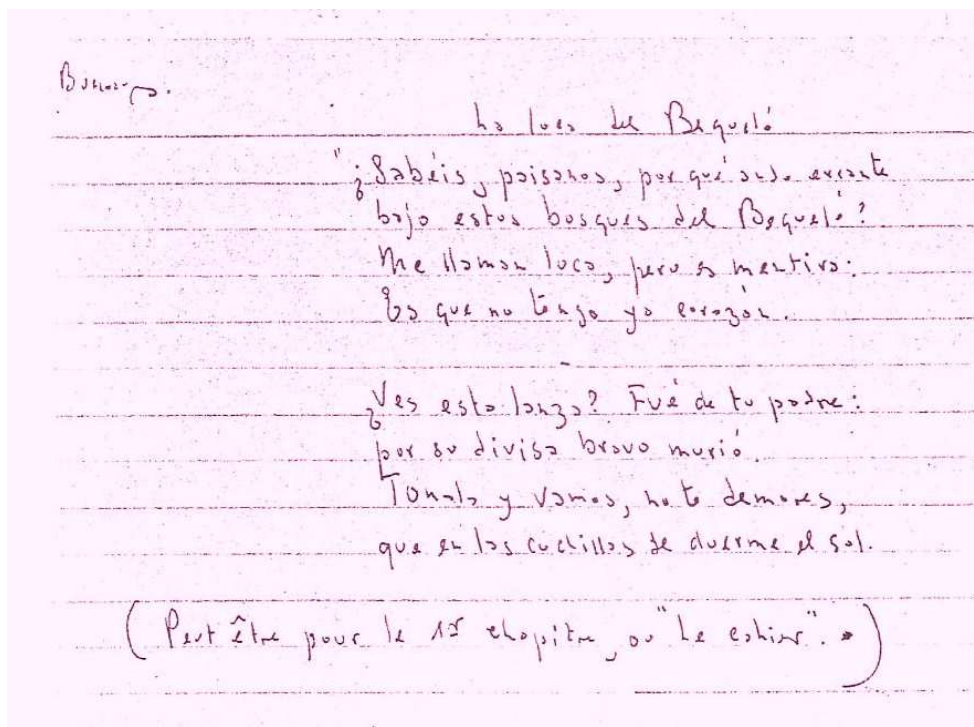 La loca del Bequeló
"¿Sabéis, paisanos, por qué ando errante
bajo estos bosques del Bequeló?
Me llaman loca, pero es mentira:
Es que no tengo yo corazón.
-
¿Ves esta lanza? Fué de tu padre:
por su divisa bravo murió.
Tomala y vamos, no te demores,
que en las cuchillas se duerme el sol.
(Peut être pour le 1er chapitre, ou "Le cahier".)